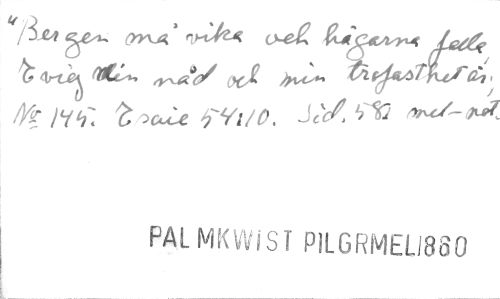 "Bergen må vika och högarna falla,
Evig din nåd och min trofasthet är,
No 145. Esaie 54:10. Sid. 582 mel-not.
PALMKWIST PILGRMEL1860